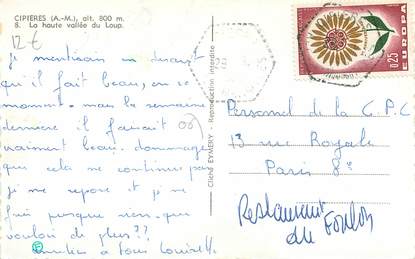 CIPIÈRES (A.-M.), alt. 800 m.
8. La haute vallée du Loup.
12 €
je mentirais en disant
qu'il fait beau, en ce
moment. mais la semaine
dernière il faisait
vraiment beau. dommage
que cela ne continue pas
je me repose et je ne
fais presque rien. que
vouloir de plus ??
à tous
Cliché EYMERY - Reproduction interdite
0,25
EUROPA
Personnel de la C.P.C
13 rue Royale
Paris 8e
Restaurant
du Foulon